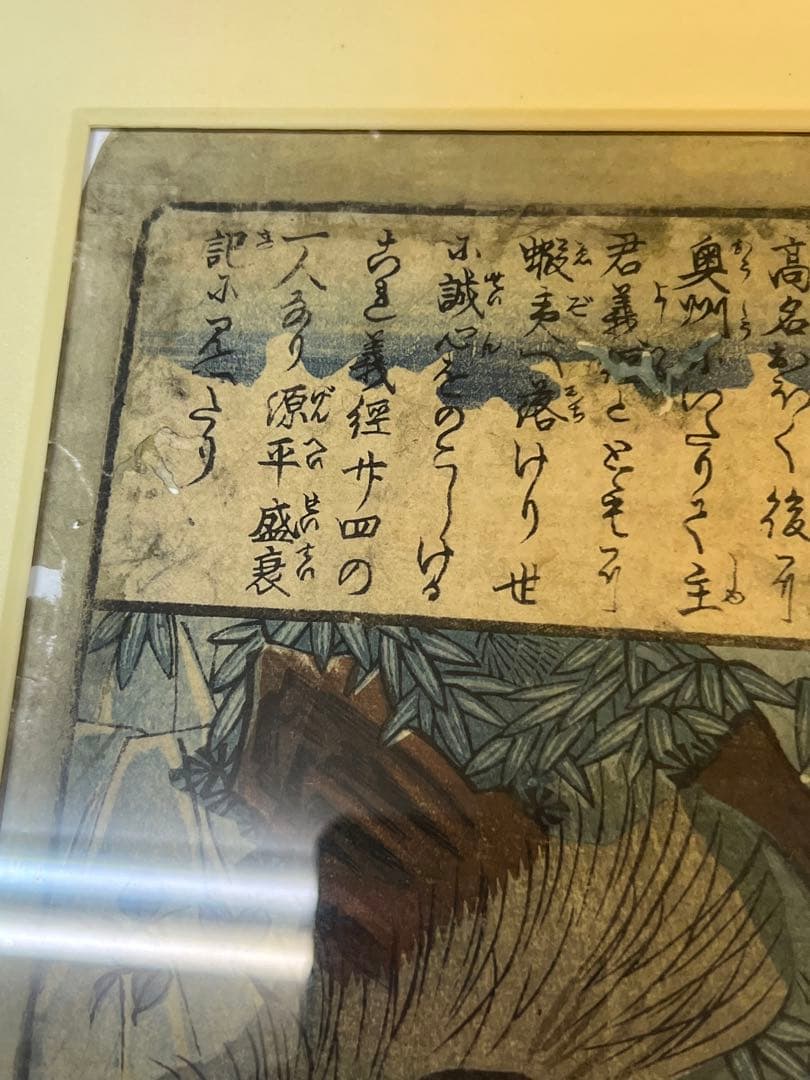 高名おほく後に
奥州にいたりて主
君義經とともに
蝦夷へ落けり世
に誠心をのこしける
これ義經廿四の
一人なり源平盛衰
記に見へたり